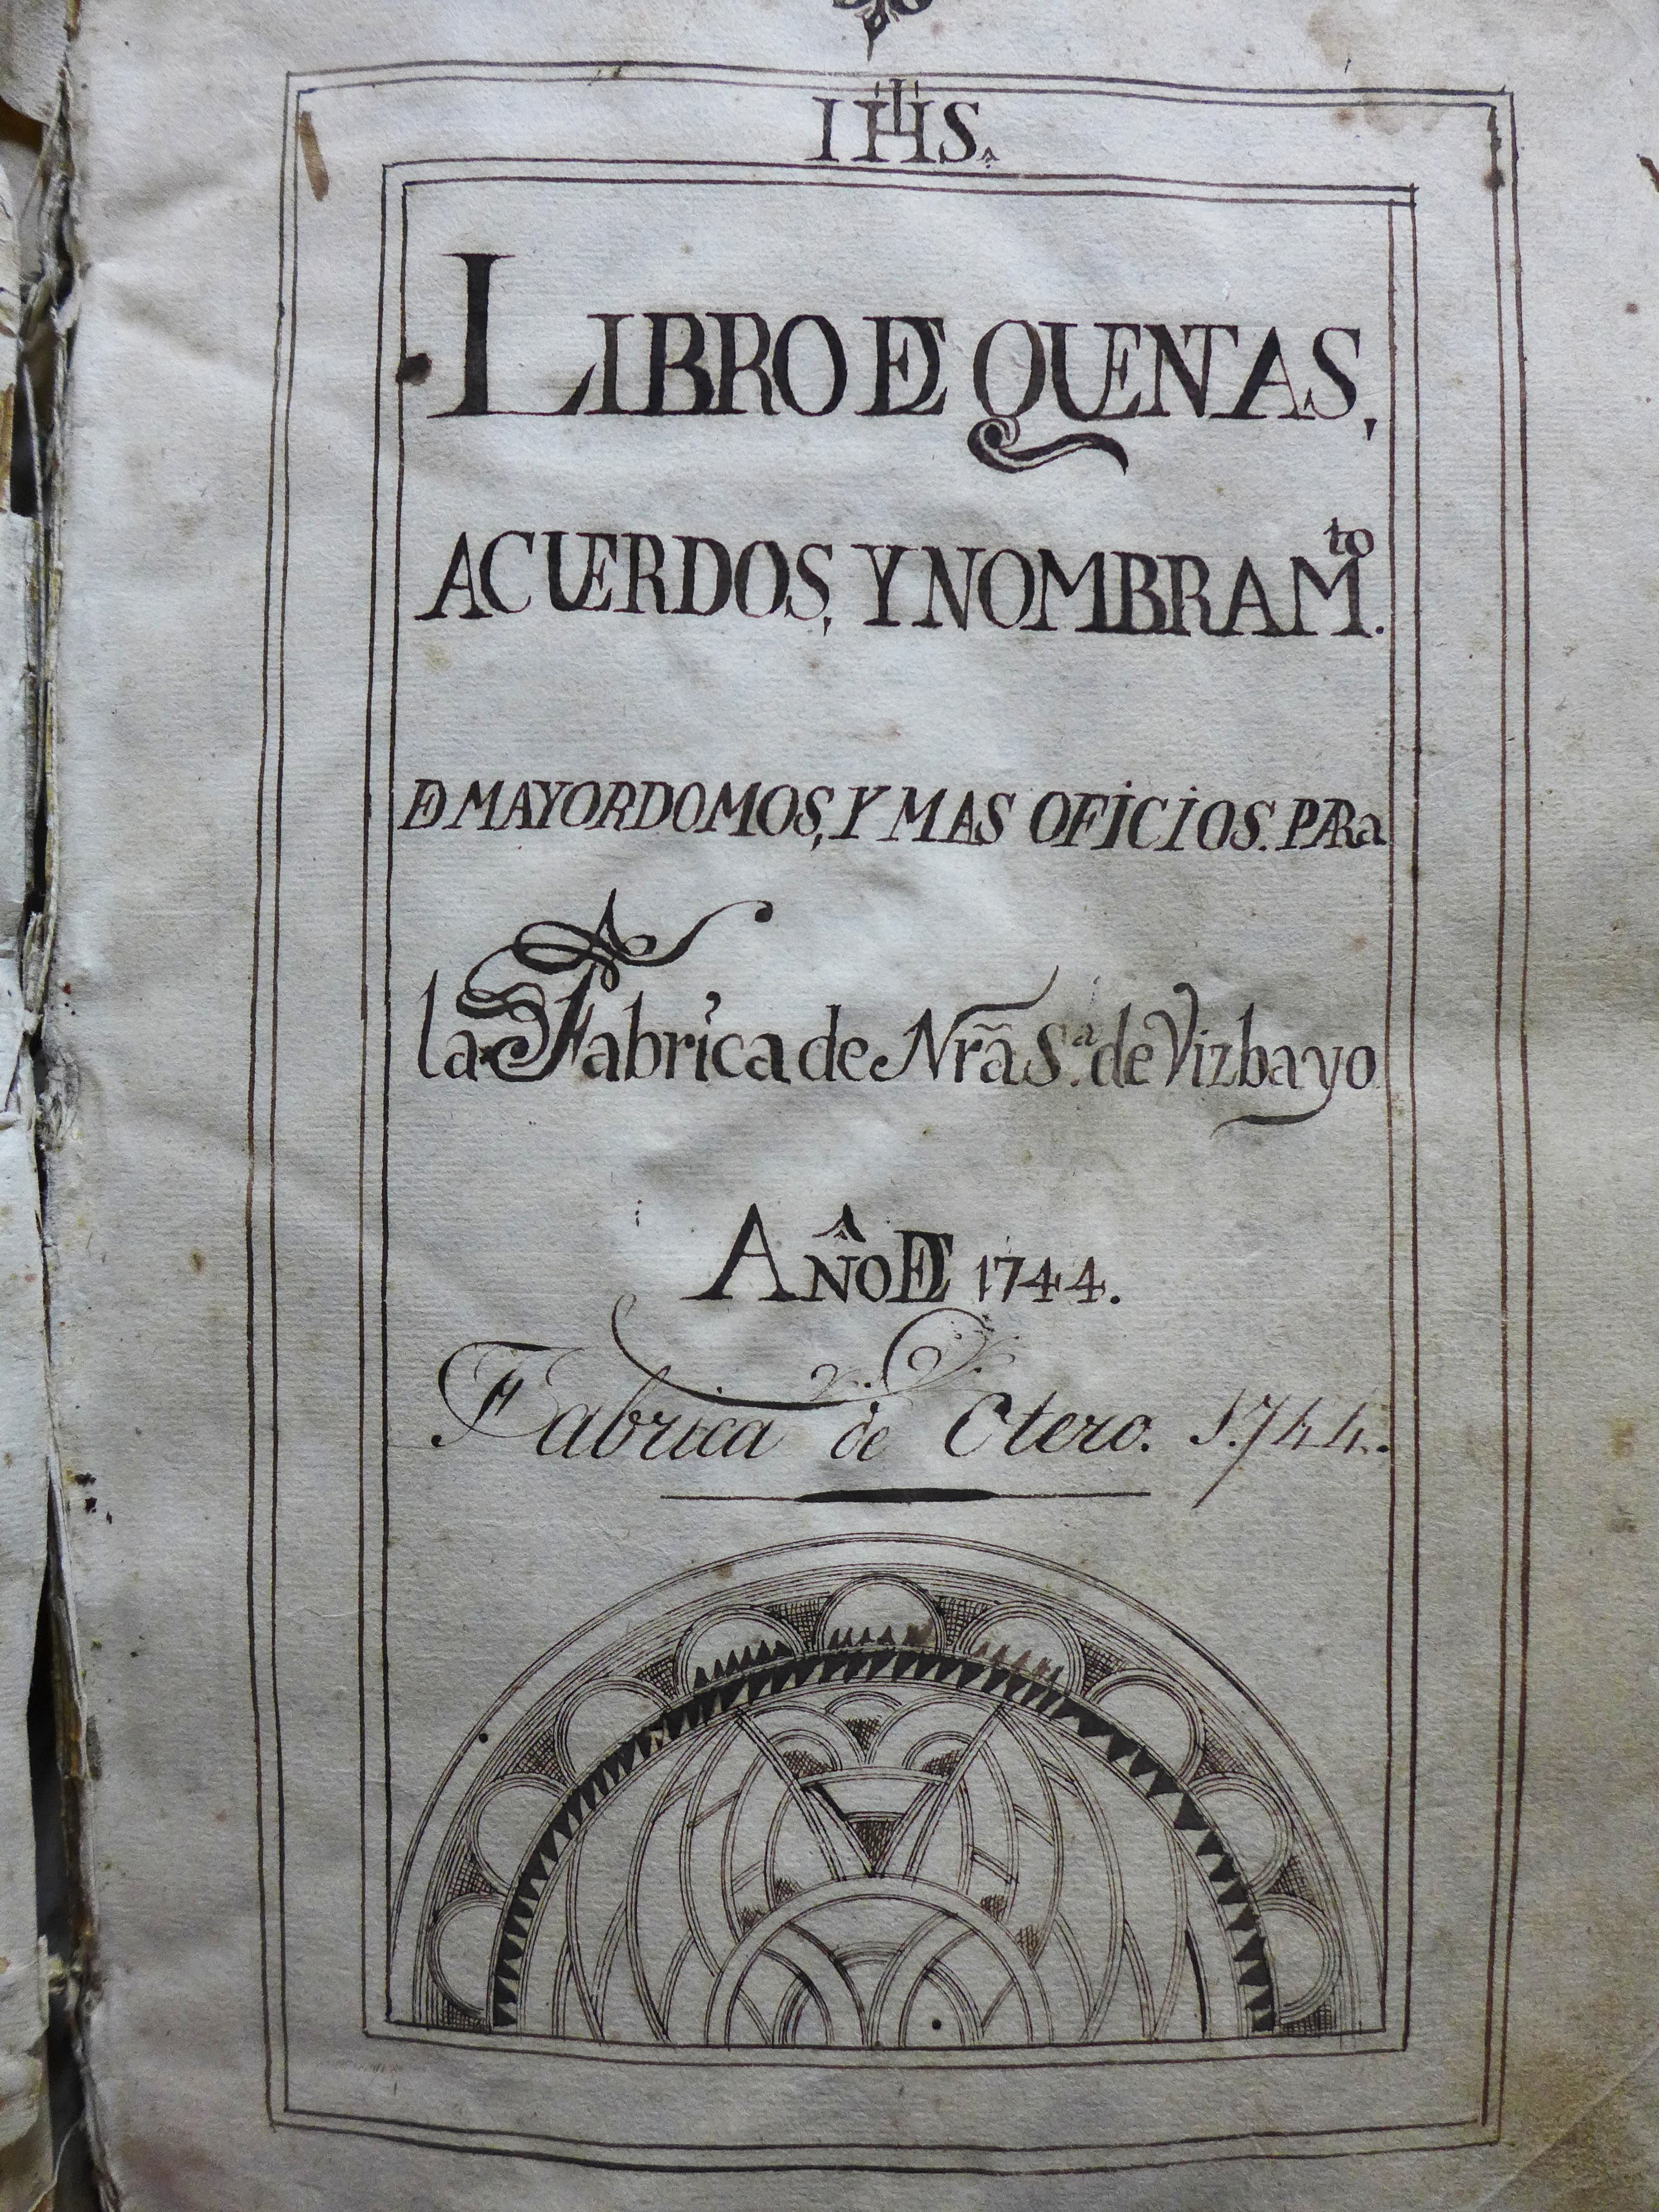 IHS.
LIBRO DE QUENTAS,
ACUERDOS, Y NOMBRAMto.
DE MAYORDOMOS, Y MAS OFICIOS. PARa
la Fabrica de Nrã Sa. de Vizbayo
AÑO DE 1744.
Fabrica de Otero. 1744.